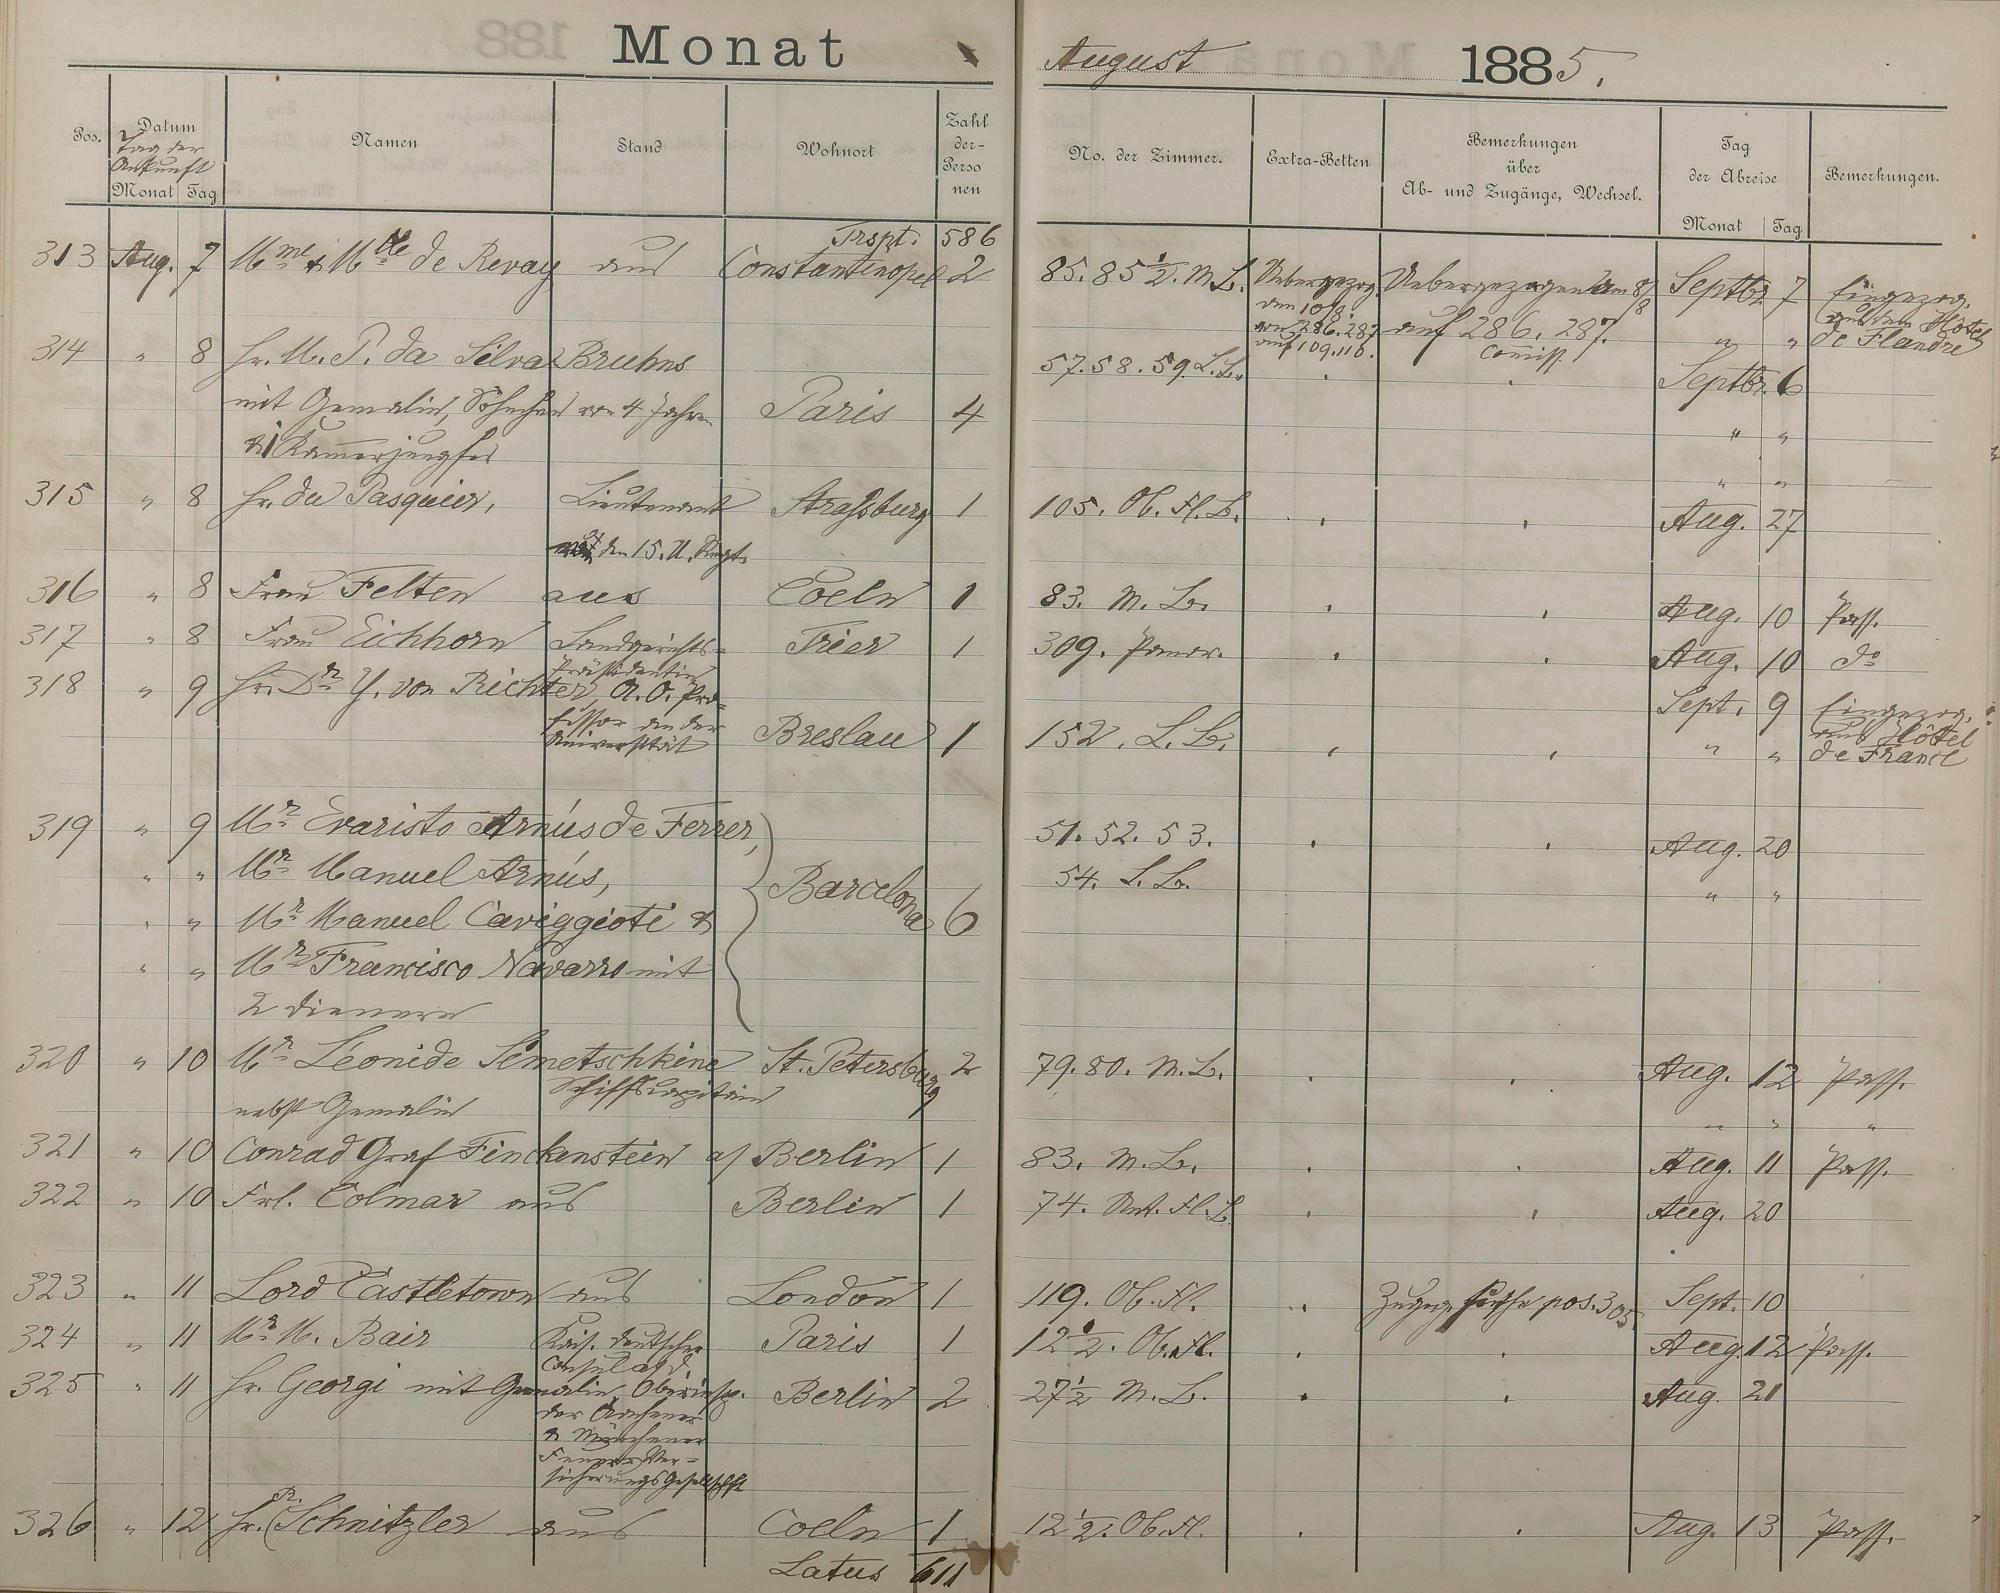 Monat August 1885.
Pos. Datum Namen Stand Wohnort Zahl der Personen No. der Zimmer. Extra-Betten Bemerkungen über Ab- und Zugänge, Wechsel. Tag der Abreise Bemerkungen.
Tag der Ankunft
Monat Tag Monat Tag
Trspt. 586
313 Aug. 7 Mme & Mlle de Revay aus Constantinopel 2 85. 85½. M. L. Uebergezog. Uebergezogen am 8/8 Septbr. 7 Eingezog.
den 10/8. aus dem Hôtel
von 286. 287 auf 286. 287. " " de Flandre
auf 109. 110. Comiss.
314 " 8 Hr. M. P. da Silva Bruhns 57. 58. 59. L. L. Septbr. 6
mit Gemalin, Söhnchen von 4 Jahren Paris 4 " "
& 1 Kammerjungfer " "
315 " 8 Hr. du Pasquier, Lieutenant Straßburg 1 105. Ob. Fl. L. Aug. 27
den 15. U. Regt.
316 " 8 Frau Felten aus Coeln 1 83. M. L. Aug. 10 Pass.
317 " 8 Frau Eichhorn Landgerichts- Trier 1 309. Panor. Aug. 10 do
Präsidentin
318 " 9 Hr. Dr. Y. von Richter, A. O. Pro- Sept. 9 Eingezog.
fessor an der aus Hôtel
Universität Breslau 1 152. L. L. " " de France
319 " 9 Mr. Evaristo Arnús de Ferrer, 51. 52. 53. Aug. 20
" " Mr. Manuel Arnús, Barcelona 6 54. L. L. " "
" " Mr. Manuel Caviggioti &
" " Mr. Francisco Navarro mit
2 Dienern
320 " 10 Mr. Léonide Sémetschkine St. Petersburg 2 79. 80. M. L. Aug. 12 Pass.
Schiffscapitain
nebst Gemalin " " "
321 " 10 Conrad Graf Finckenstein a/ Berlin 1 83. M. L. Aug. 11 Pass.
322 " 10 Frl. Colmar aus Berlin 1 74. Unt. Fl. L. Aug. 20
323 " 11 Lord Castletown aus London 1 119. Ob. Fl. Zugeg. siehe pos. 305 Sept. 10
324 " 11 Mr. M. Bair Kais. deutscher Paris 1 12½. Ob. Fl. Aug. 12 Pass.
Consul a/d.
325 " 11 Hr. Georgi mit Gemalin, Oberinsp. Berlin 2 27½ M. L. Aug. 21
der Aachener
& Münchener
Feuer Ver-
sicherungs Gesellschft
326 " 12 Hr. R. Schnitzler aus Coeln 1 12½. Ob. Fl. Aug. 13 Pass.
Latus 611